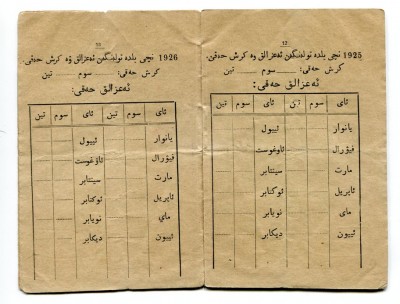 12
1925 نچی یلده تولەنگەن ئەعزالق وە كرش حەقی.
كرش حەقی: سوم تین
ئەعزالق حەقی:
ئای سوم تین ئای سوم تین
یانوار ئییول
فیۋرال ئاوغوست
مارت سینتابر
ئاپریل ئوكتابر
مای نویابر
ئییون دیكابر
13
1926 نچی یلده تولەنگەن ئەعزالق وە كرش حەقی.
كرش حەقی: سوم تین
ئەعزالق حەقی:
ئای سوم تین ئای سوم تین
یانوار ئییول
فیۋرال ئاۋغوست
مارت سینتابر
ئاپریل ئوكتابر
مای نویابر
ئییون دیكابر